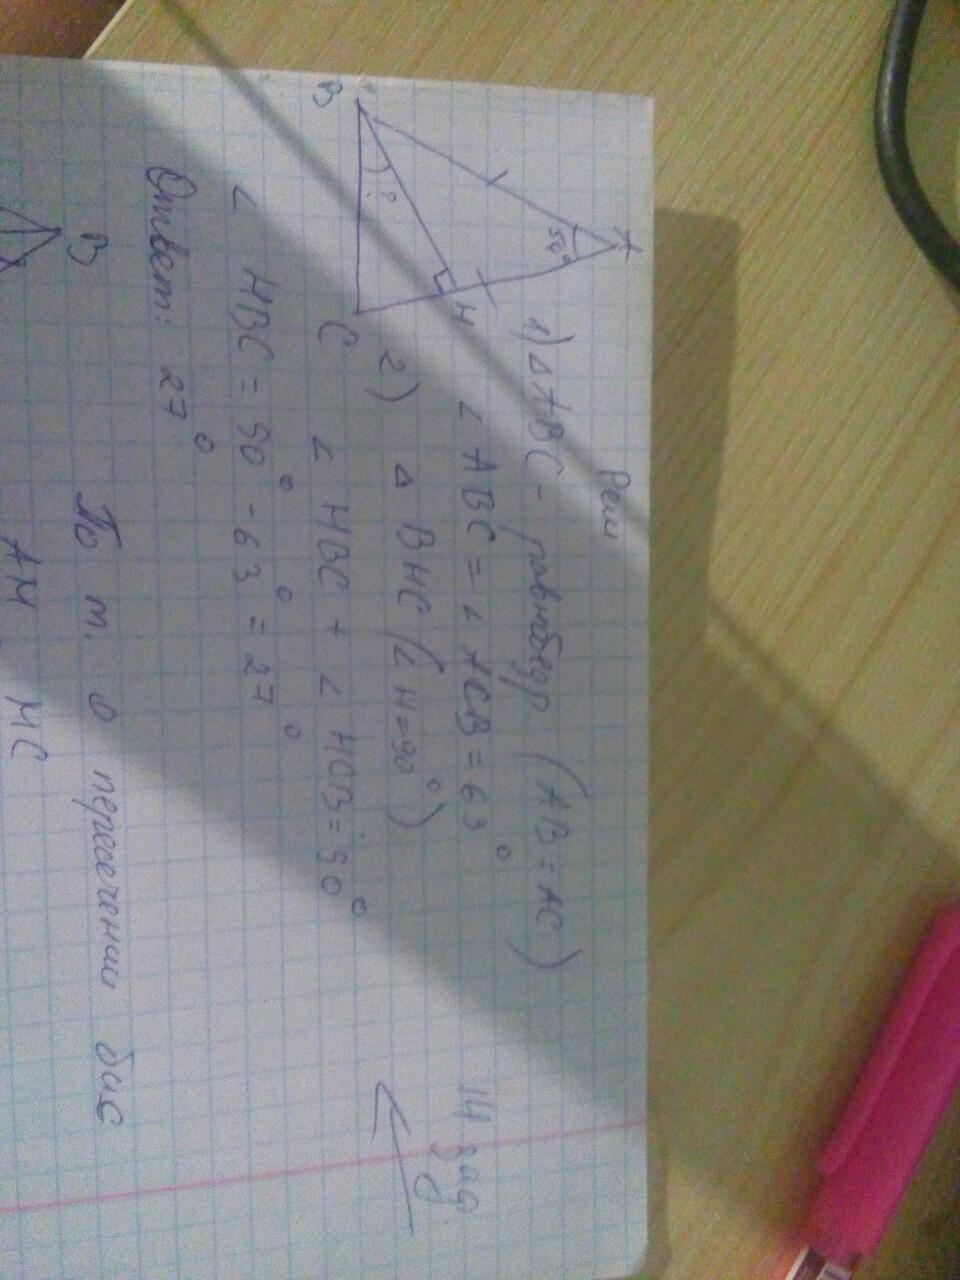 Реш
A
54°
B
?
H
C
1) Δ ABC - равнобедр (AB = AC)
∠ ABC = ∠ ACB = 63°
2) Δ BHC (∠ H = 90°)
∠ HBC + ∠ HCB = 90°
∠ HBC = 90° - 63° = 27°
Ответ: 27°
14 зад.
B
По т. о пересечении бис
AM MC